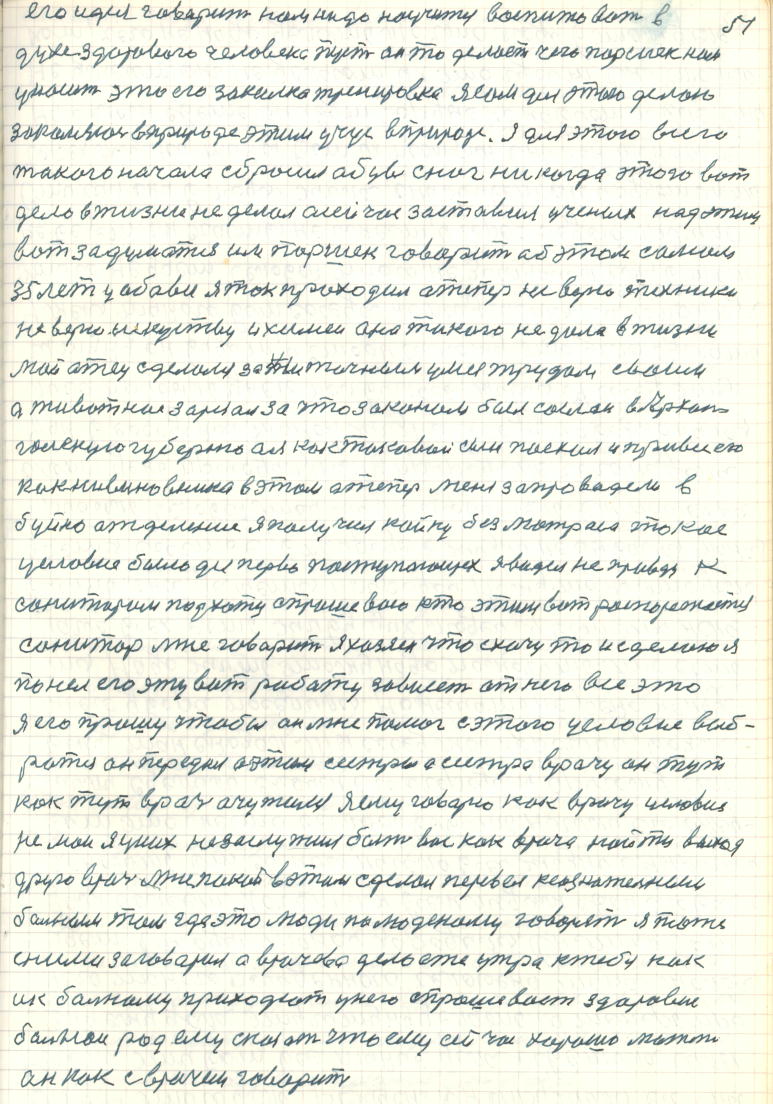 51
его идея говорит нам надо научить воспитовать в
духе здорового человека тут он то делает чего паршек нам
учишт это его закалка тренировка я сам для этого делаю
закаляюся в природе этим учусь в природе. Я для этого всего
такого начала сбросил обувь с ног никогда этого вот
дело в жизни не делал а сейчас заставил ученых над этим
вот задуматся им паршек говорит об этом самом
35 лет у обави я так проходил а тепер не верю техники
не верю искуству и химеи она такого не дала в жизни
мой отец сделался зажиточным умея трудом своим
а животное зарезал за что законом был сослан в Архан-
гелскую губерню а я как таковой сын поехал и привез его
как невиновника в этом а тепер меня запровадели в
буйно отделение я получил койку без матраса такое
условие было для перво поступающех я видел не правду к
санитарам подхожу спрашеваю кто этим вот распоряжается
санитар мне говорит я хозяен что схочу то и сделаю я
понел его эту вот работу зависет от него все это
я его прошу чтобы он мне помог с этого условие выб-
ратся он передал об этом сестры а сестра врачу он тут
как тут врач очутился я ему говарю как врачу условие
не мои я у них не заслужил боят вас как врача найти выход
друго врач мне покой в этим сделал перевел к сознателным
болным там где это люди по людскому говорят я тоже
с ними заговарил а врачево дело это утра к тебе как
и к болному приходют у него спрашевают здоровие
болной рад ему сказат что ему сейчас хорошо может
он как с врачем говорит